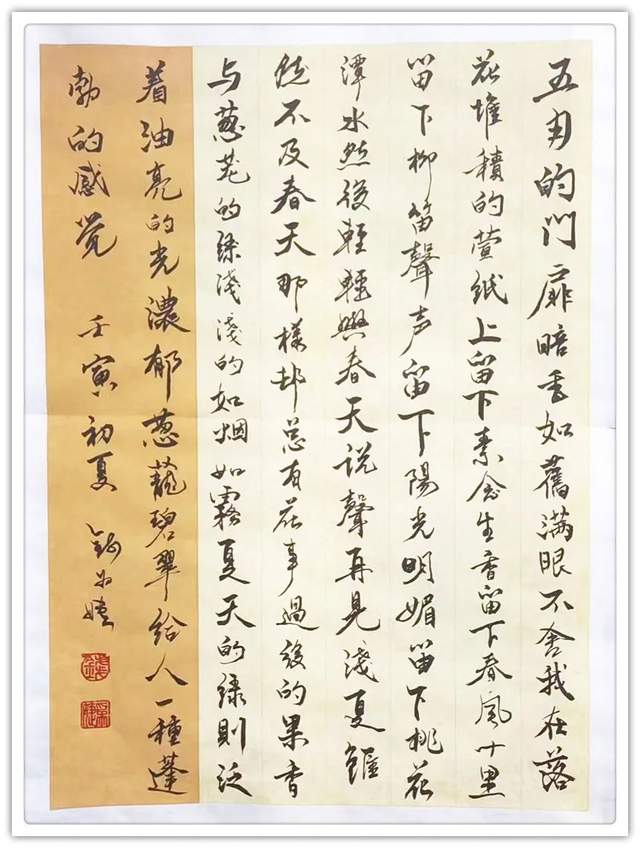 五月的門扉暗香如舊满眼不舍我在落
花堆積的萱紙上留下素念生香留下春風十里
留下柳笛聲声留下陽光明媚留下桃花
潭水然後輕輕與春天说聲再見淺夏雖
然不及春天那樣却总有花事過後的果香
与葱茏的绿淺淺的如烟如霧夏天的绿則泛
着油亮的光濃郁葱蘢碧翠给人一種蓬
勃的感觉 壬寅初夏